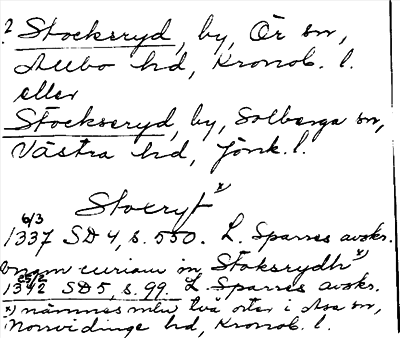 ? Stocksryd, by, Ör sn,
Allbo hd, Kronob. l.
eller
Stockseryd, by, Solberga sn,
Västra hd, Jönk. l.
Stocryf x)
6/3
1337 SD 4, s. 550. L. Sparres avskr.
curiam in Stoksrydh x)
25/2
1342 SD 5, s. 99. L. Sparres avskr.
x) nämnes mln två orter i Asa sn,
Norrvidinge hd, Kronob. l.